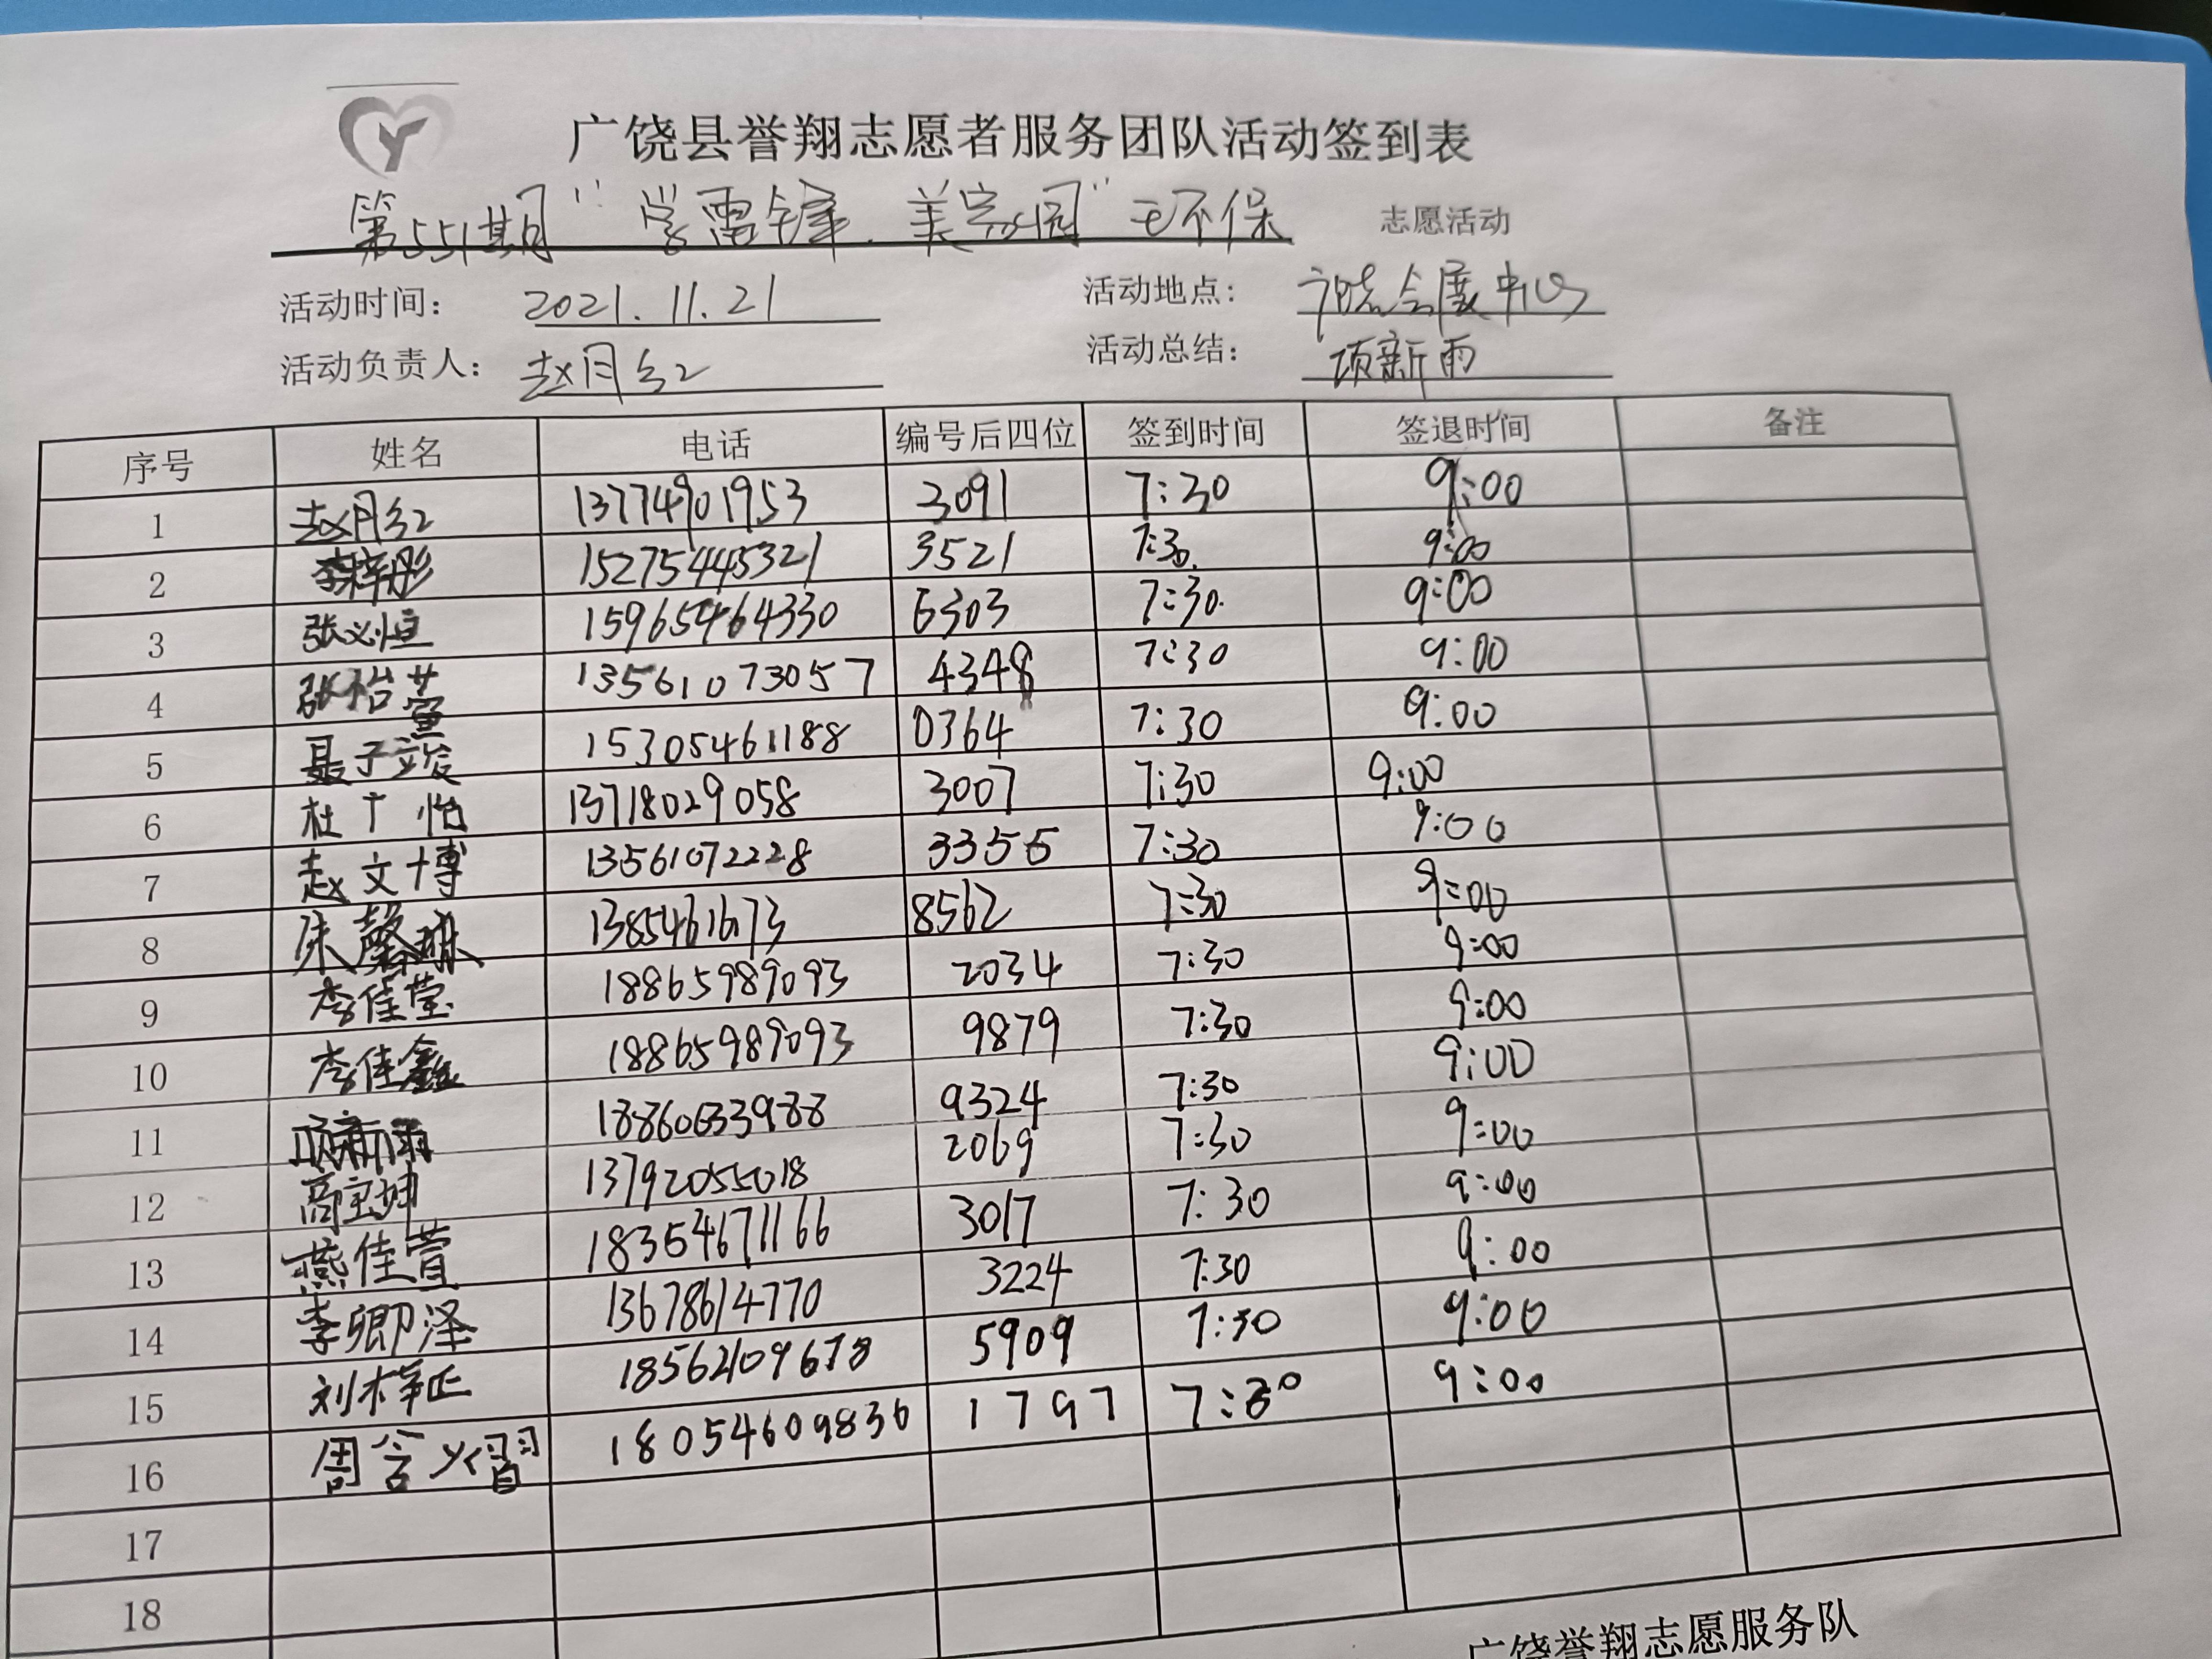 广饶县誉翔志愿者服务团队活动签到表
第551期“学雷锋.美家园”环保 志愿活动
活动时间： 2021.11.21 活动地点： 广饶会展中心
活动负责人： 赵月红 活动总结： 项新雨
序号 姓名 电话 编号后四位 签到时间 签退时间 备注
1 赵月红 13774901953 3091 7:30 9:00
2 李梓彤 15275445321 3521 7:30. 9:00
3 张必恒 15965464330 6303 7:30. 9:00
4 张怡萱 13561073057 4348 7:30 9:00
5 聂子竣 15305461188 0364 7:30 9:00
6 杜 怡 13718029058 3007 7:30 9:00
7 赵文博 13561072228 3355 7:30 9:00
8 朱馨琳 1385461673 8562 7:30 9:00
9 李佳莹 18865989093 2034 7:30 9:00
10 李佳鑫 18865989093 9879 7:30 9:00
11 项新雨 18860633988 9324 7:30 9:00
12 高宝坤 13792055018 2069 7:30 9:00
13 燕佳萱 18354671166 3017 7:30 9:00
14 李卿泽 13678614770 3224 7:30 9:00
15 刘梓正 18562109678 5909 7:30 9:00
16 周含熠 18054609836 1797 7:30 9:00
17
18
广饶誉翔志愿服务队